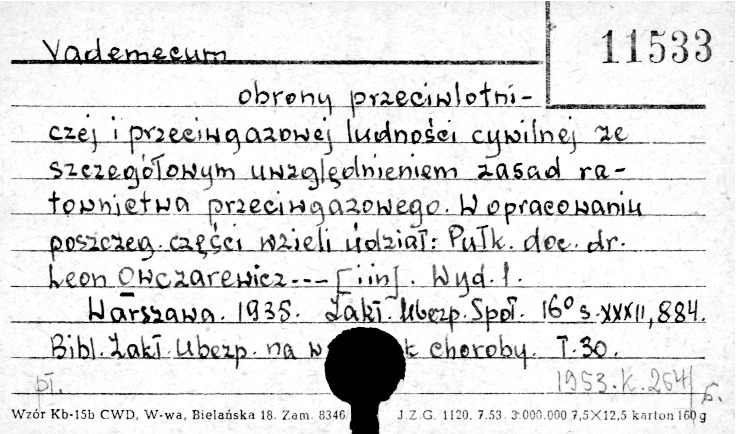 Vademecum
11533
obrony przeciwlotni-
czej i przeciwgazowej ludności cywilnej ze
szczegółowym uwzględnieniem zasad ra-
townictwa przeciwgazowego. W opracowaniu
poszczeg. części wzieli udział: Pułk. doc. dr.
Leon Owczarewicz --- [i in]. Wyd. 1.
Warszawa. 1935. Zakł. Ubezp. Społ. 16° s. XXXII, 884.
Bibl. Zakł. Ubezp. na choroby. T. 30.
pł. 1953. K. 264/
Wzór Kb-15b CWD, W-wa, Bielańska 18. Zam. 8346 J.Z.G. 1120. 7.53. 3.000.000 7,5×12,5 karton 160 g